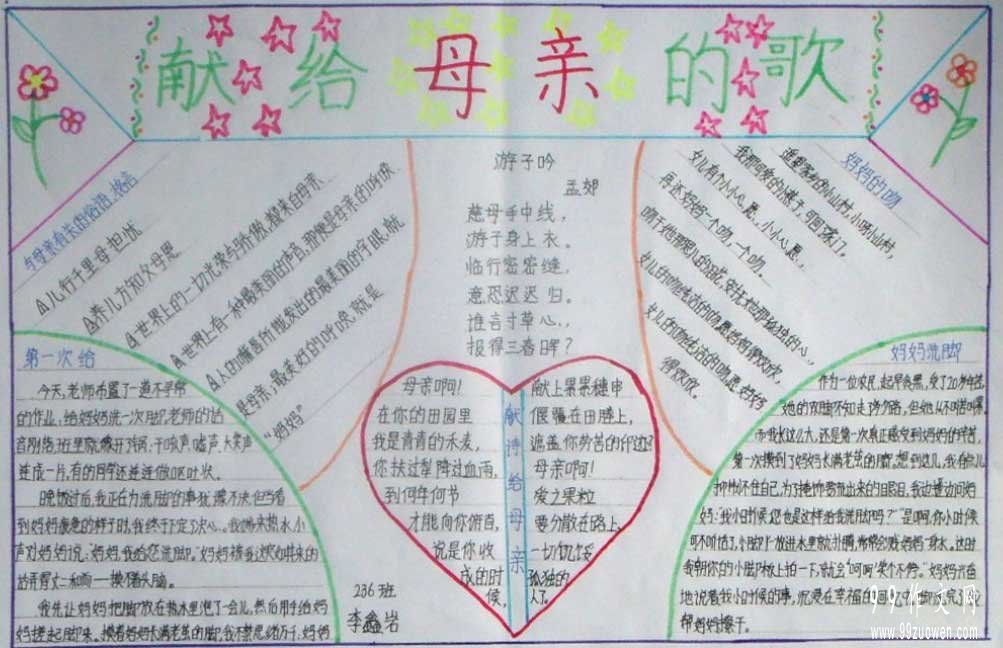 献给母亲的歌
与母亲有关的俗语、格言
△儿行千里母担忧
△养儿方知父母恩
△世界上的一切光荣与骄傲,都来自母亲
△世界上有一种最美丽的声音,那便是母亲的呼唤
△人的嘴唇所能发出的最美丽的字眼,就
是母亲,最美好的呼唤,就是
“妈妈”
游子吟
孟郊
慈母手中线,
游子身上衣。
临行密密缝,
意恐迟迟归。
谁言寸草心,
报得三春晖?
妈妈的吻
遥远的小山村,小呀小山村,
我那可爱的小燕子,可回了家门,
女儿有个小小心愿,小小心愿,
再还妈妈一个吻,一个吻。
吻干她那思儿的泪花,安抚她那孤独的心,
女儿的吻
女儿的吻
得欢欣。
第一次给
今天,老师布置了一道不寻常
的作业,给妈妈洗一次脚。老师的话
音刚落,班里就像开了锅,干咳声、嘘声、大笑声
连成一片,有的同学还连连做呕吐状。
晚饭过后,我正在为洗脚的事犹豫不决,但当看
到妈妈疲惫的样子时,我终于下定了决心。我端来热水,小
声对妈妈说:“妈妈,我给您洗脚。”妈妈被我这突如其来的
话弄得丈二和尚——摸不着头脑。
我先让妈妈把脚放在热水里泡了一会儿,然后用手给妈
妈搓起脚来。摸着妈妈长满老茧的脚,我不禁思绪万千:妈妈
母亲啊!
在你的田园里
我是青青的禾麦,
你扶过犁降过血雨,
到何年何节
才能向你俯首,
说是你收
成的时
候,
献诗给母亲
献上果果穗串
偃覆在田塍上,
遮盖你劳苦的
母亲啊!
爱之果粒
要分散在路上,
一切饥馁
孤独的
人了。
286班
李鑫岩
妈妈洗脚
作为一位农民,起早贪黑,受了20多年苦,
她的双脚不知走了多少路,但她从不叫苦叫累。
而我长这么大,还是第一次真正感受到妈妈的辛苦,
第一次摸到了妈妈长满老茧的脚。想到这儿,我有点儿
抑制不住自己,为了掩饰
妈:“我小时候,您也是这样给我洗脚吗?”“是啊,你小时候
可不听话了,小脚丫一放进水里就扑腾,常常会溅妈妈一身水。这时
我朝你的小脚板上拍一下,就会“呵呵”笑个不停。”妈妈兴奋
地说着我小时候的事,沉浸在幸福的回忆中
帮妈妈擦干。
99作文网
www.99zuowen.com